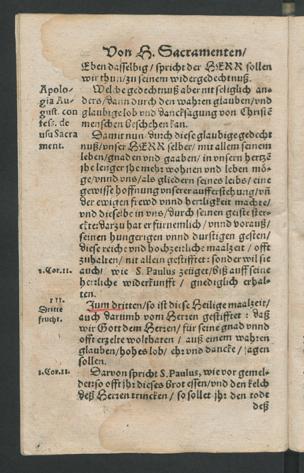 Von H. Sacramenten/
Eben dasselbig/ spricht der HERR sollen
wir thun/zu seinem widergedechtnuß.
Apolo-
gia Au-
gust. con
fess. de
usu Sacra
ment.
Welche gedechtnuß aber nit seliglich an-
ders/dann durch den wahren glauben/vnd
glaubige lob vnd dancksagung von Christē
menschen beschehen kan.
Damit nun durch diese glaubige gedecht
nuß/vnser HERR selber/ mit allem seinem
leben/gnaden vnd gaaben/ in vnsern hertzē
ihe lenger ihe mehr wohnen vnd leben mö-
ge/vnnd vns/als gliedern seines leibs/ eine
gewisse hoffnung vnserer aufferstehung/vn̄
der ewigen frewd vnnd herrligkeit machte/
vnd dieselbe in vns/durch seinen geiste ster-
cke: darzu hat er fürnemlich/ vnnd vorauß/
seinen hungerigen vnnd durstigen gesten/
diese reiche vnd hochzeitliche maalzeit/ offt
zuhalten/ nit allein gestifftet: sonder wil sie
1.Cor.11.
auch/ wie S. Paulus zeüget/biß auff seine
herrliche widerkunfft/ gnediglich erhal-
ten.
III.
Dritte
frucht.
Zum dritten/so ist diese Heilige maalzeit/
auch darumb vom Herren gestifftet: daß
wir Gott dem Herren/ für seine gnad vnnd
offt erzelte wolthaten/ auß einem wahren
glauben/hohes lob/ ehr vnd dancke/sagen
sollen.
1.Cor.11.
Darvon spricht S. Paulus, wie vor gemel-
det: so offt ihr dieses brot essen/vnd den kelch
deß Herren trincken/ so sollet ihr den todt
deß